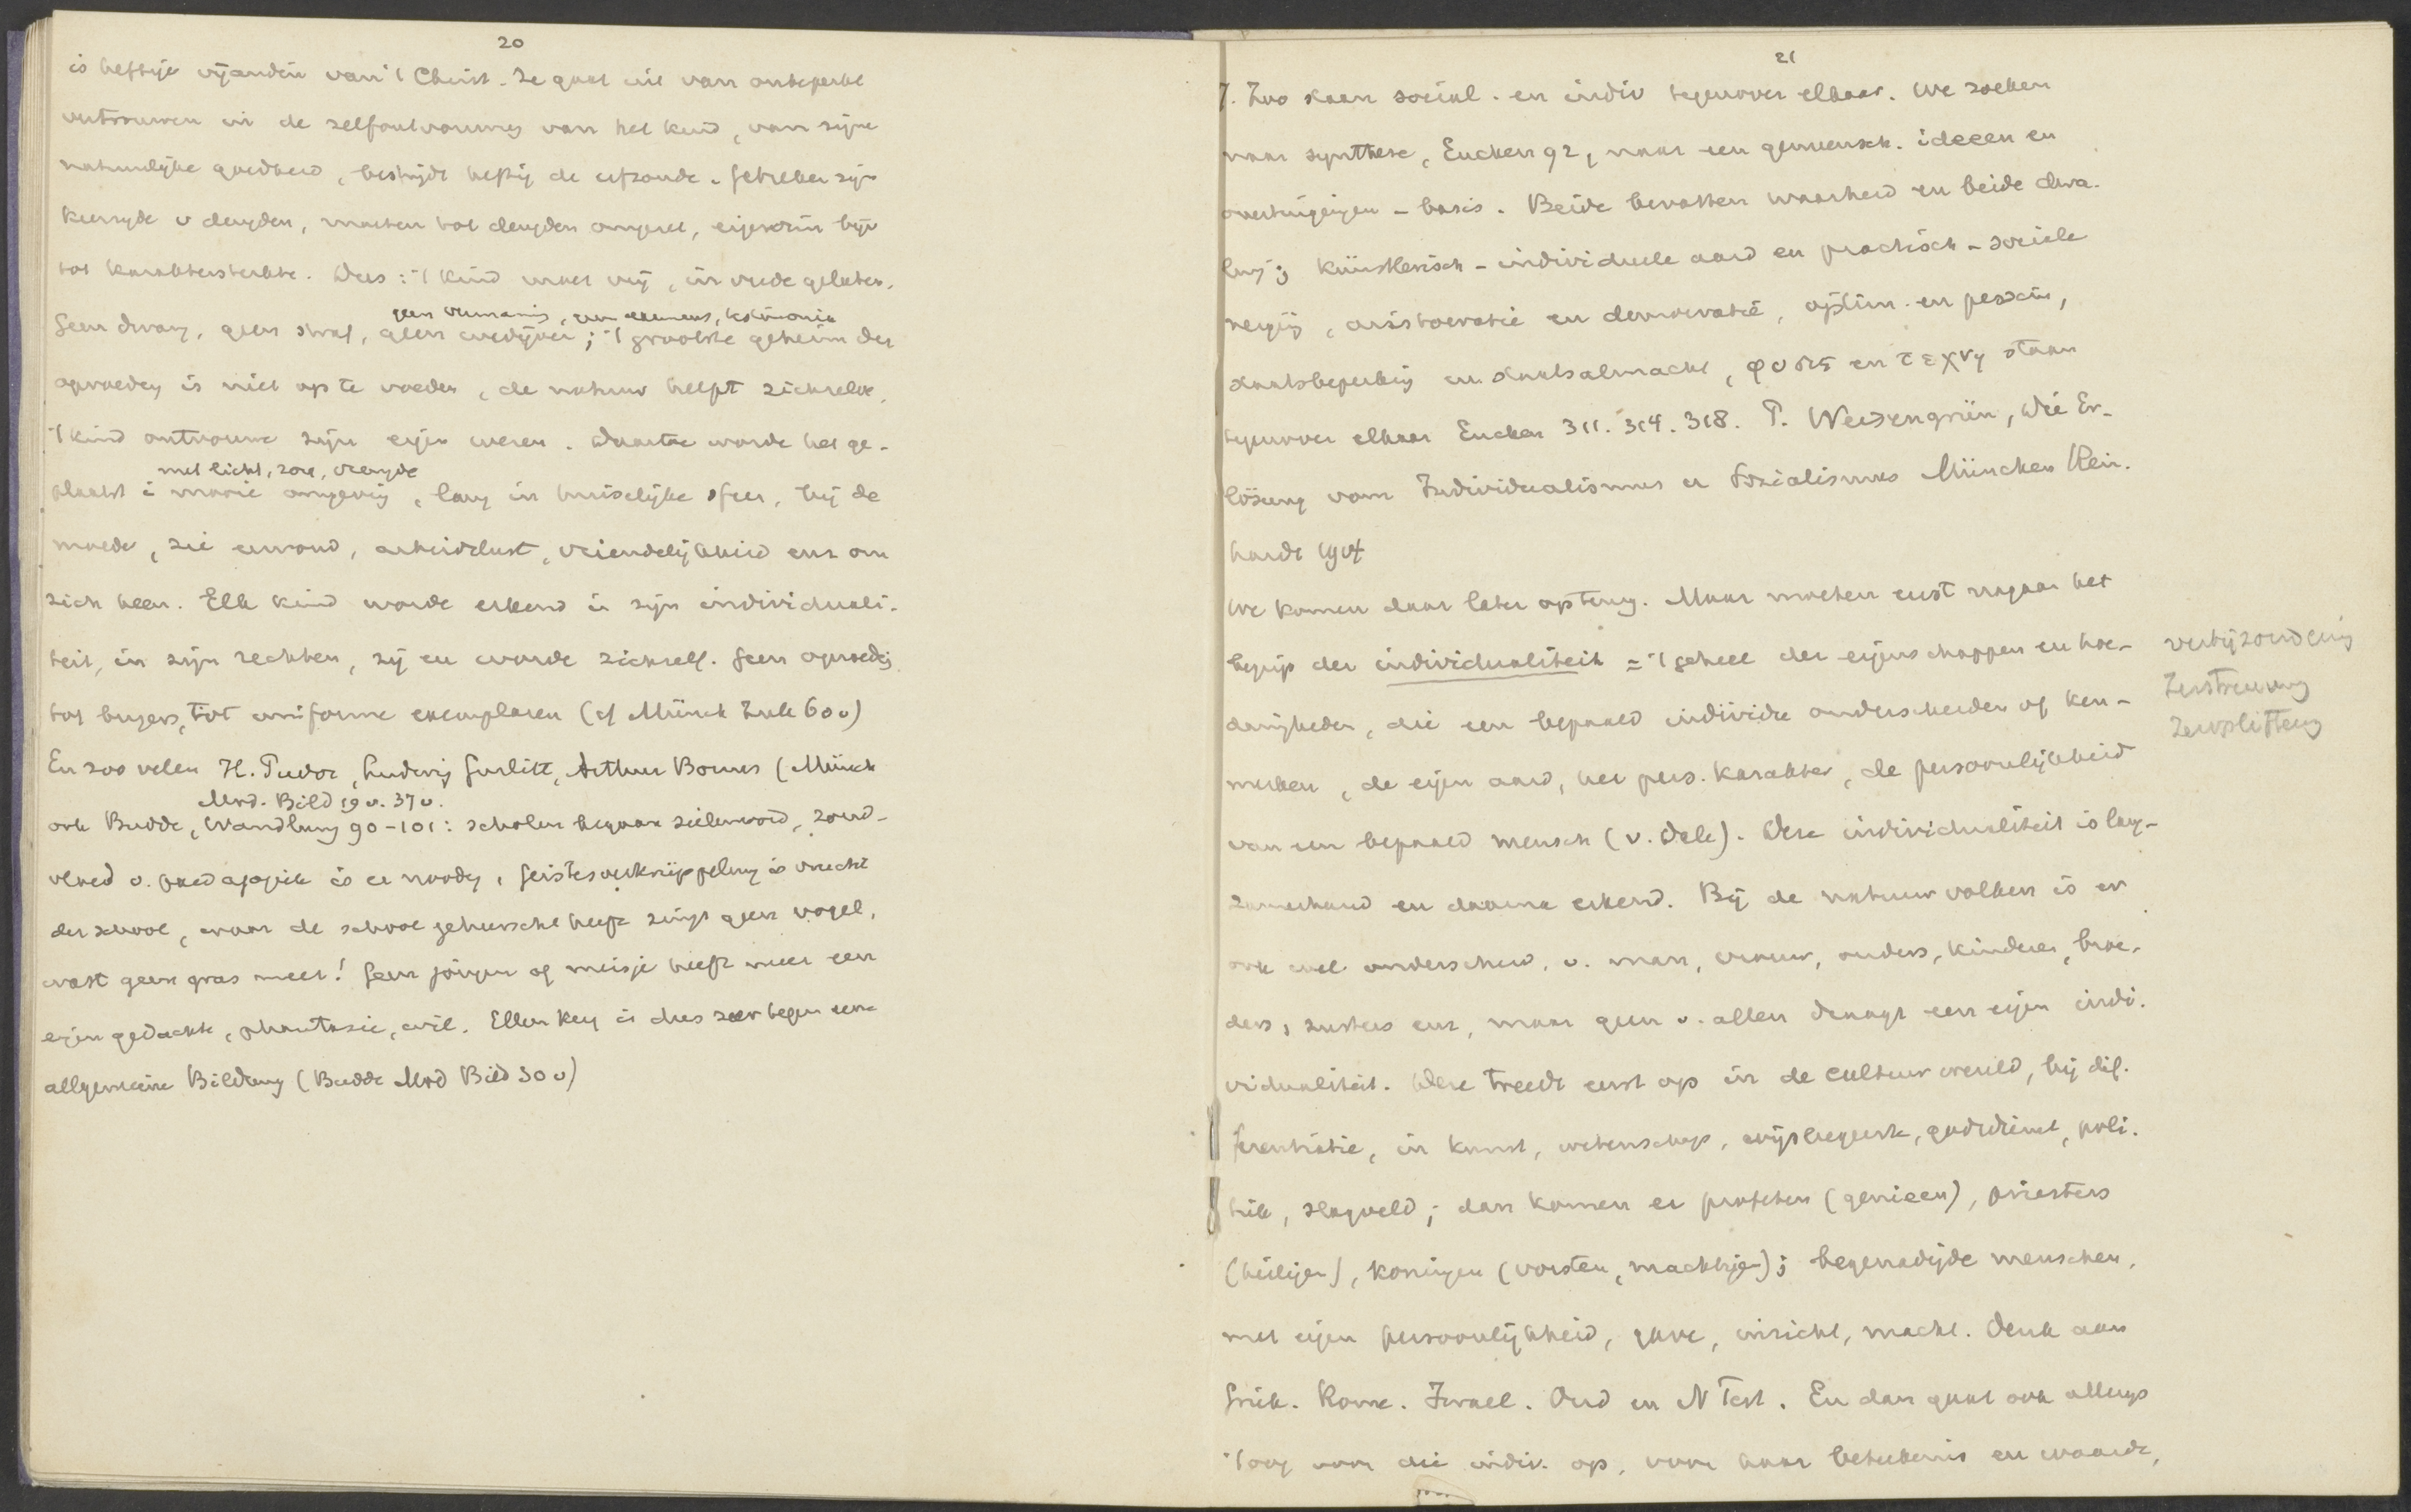 20
is heftige vijandin van 't Christ. Ze gaat uit van onbeperkt
vertrouwen in de zelfontvouwing van het kind, van zijne
natuurlijke goedheid, bestrijdt heftig de erfzonde. Gebreken zijn
keerzijde v deugden, moeten tot deugden omgezet, eigenzin bijv
tot karaktersterkte. Dus: 't Kind moet vrij, in vrede gelaten.
geen vermanis, geen examens, testimonia
Geen dwang, geen straf, geen wedijver; 't grootste geheim der
opvoeding is niet op te voeden, de natuur helpt zichzelve.
't kind ontvouwe zijn eigen wezen. Daartoe worde het ge-
met licht, zon, vreugde
plaatst i mooie omgeving, lang in huiselijke sfeer, bij de
moeder, zie eenvoud, arbeidslust, vriendelijkheid enz om
zich heen. Elk kind worde erkend in zijn individuali-
teit, in zijn rechten, zij en worde zichzelf. Geen opvoedg
tot burgers, tot uniforme exemplaren (cf Münch Zuk 60v)
En zoo velen H. Pudor, Ludwig Gurlitt, Arthur Bonus (Münch
Mod. Bild 19v. 37v.
ook Budde, Wandlung 90-101: scholen begaan zielenmoord, zond-
vloed v. paedagogiek is er noodig, Geistesverkrüppelung is vrucht
der school, waar de school geheerscht heeft zingt geen vogel,
wast geen gras meer! Geen jongen of meisje heeft meer een
eigen gedachte, phantasie, wil. Ellen Key is dus zeer tegen eene
allgemeine Bildung (Budde Mod Bild 30v)
21
7. Zoo staan sociaal. en indiv tegenover elkaar. We zoeken
naar synthese, Eucken 92, naar een gemeensch. ideeen en
overtuigingen-basis. Beide bevatten waarheid en beide dwa-
ling; künstlerisch-individueele aard en practisch-sociale
neiging, aristocratie en democratie, optim. en pessim,
staatsbeperking en staatsalmacht, φυσις en τεχνη staan
tegenover elkaar Eucken 311. 314. 318. P. Weisengrün, Die Er-
lösung vom Individualismus u Sozialismus München Rein-
hardt 1914
We komen daar later op terug. Maar moeten eerst nagaan het
begrip der individualiteit = 't geheel der eigenschappen en hoe-
danigheden, die een bepaald individu onderscheiden of ken-
merken, de eigen aard, het pers. karakter, de persoonlijkheid
van een bepaald mensch (v. Dale). Deze individualiteit is lang-
zamerhand en daarna erkend. Bij de natuurvolken is er
ook wel onderscheid, v. man, vrouw, ouders, kinderen, broe-
ders, zusters enz, maar geen v. allen draagt een eigen indi-
vidualiteit. Deze treedt eerst op in de cultuurwereld, bij dif-
ferentiatie, in kunst, wetenschap, wijsbegeerte, godsdienst, poli-
tiek, slagveld; dan komen er profeten (genieen), priesters
(heiligen), koningen (vorsten, machtigen); begenadigde menschen,
met eigen persoonlijkheid, gave, inzicht, macht. Denk aan
Griek. Rome. Israel. Oud en N Test. En dan gaat ook allengs
't oog voor die indiv. op, voor haar beteekenis en waarde,
verbijzondering
Zerstreuung
Zersplitterung